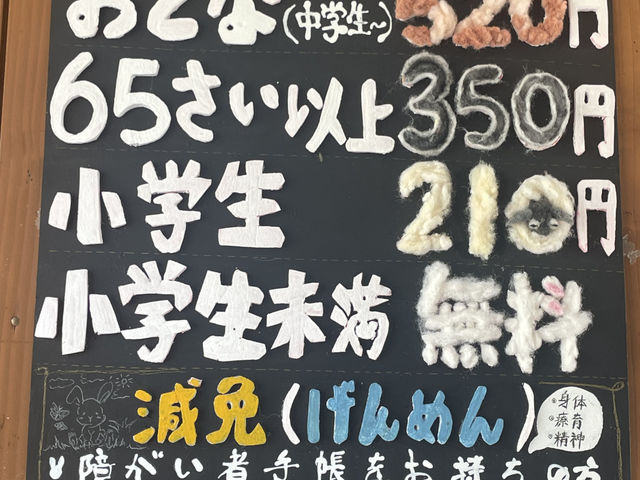 おとな(中学生〜) 520円
65さい以上 350円
小学生 210円
小学生未満 無料
減免(げんめん)
身体
療育
精神
¥障がい者手帳をお持ちの方